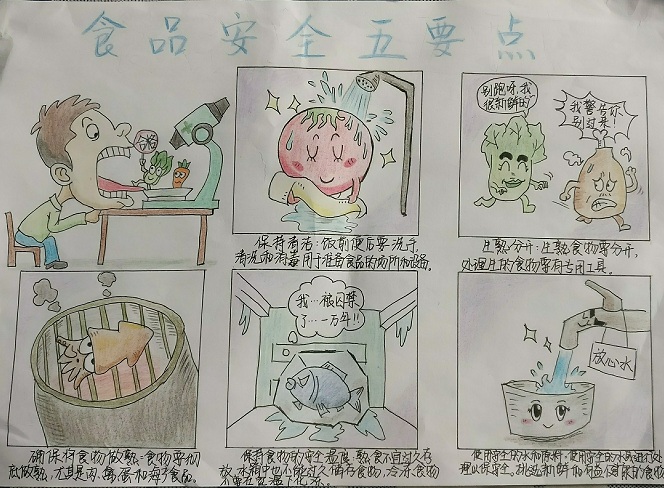 食品安全五要点
合格
别跑呀,我
很新鲜的
我警告你
别过来!
保持清洁:饭前便后要洗手,
清洗和消毒用于准备食品的场所和设备。
生熟分开:生熟食物要分开,
处理生的食物要有专用工具。
我…被囚禁
了…一万年!!
放心水
确保将食物做熟:食物要彻
底做熟,尤其是肉、禽、蛋和海产食品。
保持食物的安全温度:熟食不宜过久存
放,冰箱中也不能过久储存食物,冷冻食物
不要在室温下化冻。
使用安全的水和原料:使用安全的水或进行处
理以保安全,挑选新鲜和有益健康的食物